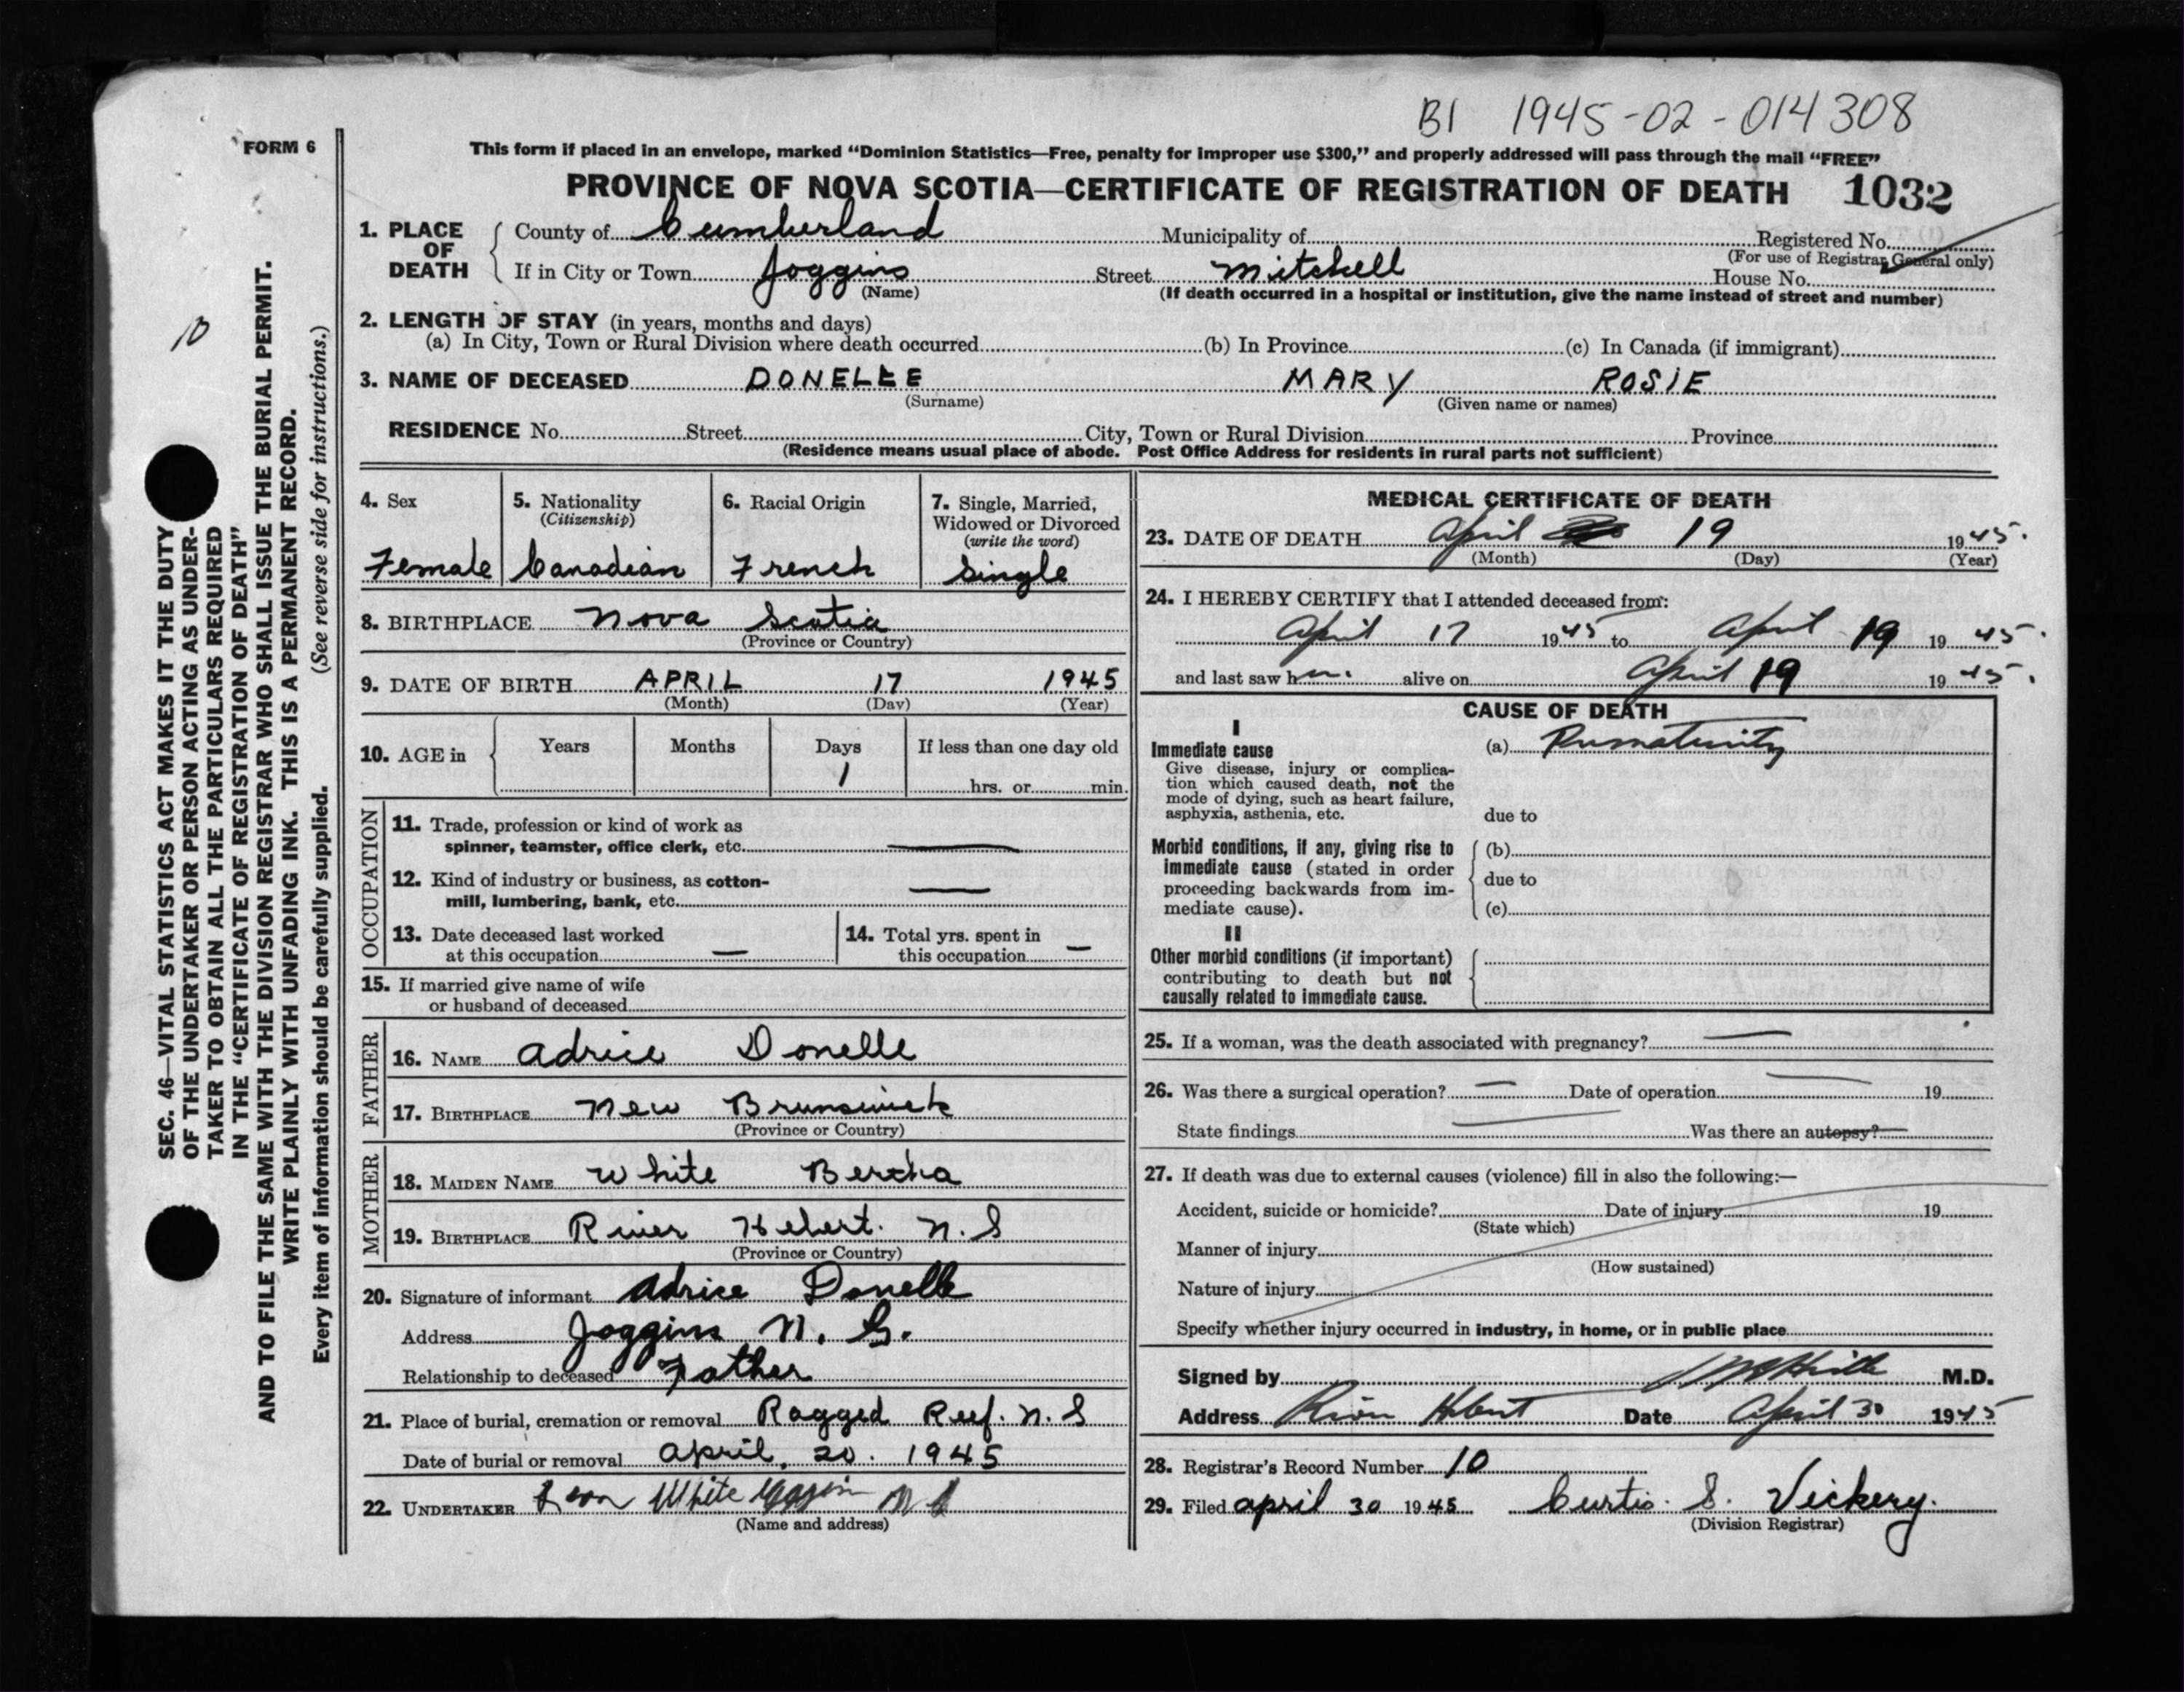 B1 1945-02-014308
FORM 6
This form if placed in an envelope, marked “Dominion Statistics—Free, penalty for improper use $300,” and properly addressed will pass through the mail “FREE”
PROVINCE OF NOVA SCOTIA—CERTIFICATE OF REGISTRATION OF DEATH 1032
1. PLACE OF DEATH
County of Cumberland Municipality of Registered No.
(For use of Registrar General only)
If in City or Town Joggins Street Mitchell House No.
(Name) (If death occurred in a hospital or institution, give the name instead of street and number)
2. LENGTH OF STAY (in years, months and days)
(a) In City, Town or Rural Division where death occurred (b) In Province (c) In Canada (if immigrant)
3. NAME OF DECEASED DONELLE MARY ROSIE
(Surname) (Given name or names)
RESIDENCE No. Street City, Town or Rural Division Province
(Residence means usual place of abode. Post Office Address for residents in rural parts not sufficient)
4. Sex
Female
5. Nationality
(Citizenship)
Canadian
6. Racial Origin
French
7. Single, Married,
Widowed or Divorced
(write the word)
Single
8. BIRTHPLACE Nova Scotia
(Province or Country)
9. DATE OF BIRTH APRIL 17 1945
(Month) (Day) (Year)
10. AGE in Years Months Days If less than one day old
1 hrs. or min.
OCCUPATION
11. Trade, profession or kind of work as
spinner, teamster, office clerk, etc. —
12. Kind of industry or business, as cotton-
mill, lumbering, bank, etc. —
13. Date deceased last worked
at this occupation —
14. Total yrs. spent in
this occupation —
15. If married give name of wife
or husband of deceased
FATHER
16. NAME Adrice Donelle
17. BIRTHPLACE New Brunswick
(Province or Country)
MOTHER
18. MAIDEN NAME White Bertha
19. BIRTHPLACE River Hebert. N.S
(Province or Country)
20. Signature of informant Adrice Donelle
Address Joggins N. S.
Relationship to deceased Father
21. Place of burial, cremation or removal Ragged Reef. N.S
Date of burial or removal April. 20. 1945
22. UNDERTAKER White Joggins N S
(Name and address)
MEDICAL CERTIFICATE OF DEATH
23. DATE OF DEATH April 19 1945.
(Month) (Day) (Year)
24. I HEREBY CERTIFY that I attended deceased from:
April 17 1945 to April 19 1945.
and last saw her alive on April 19 1945.
CAUSE OF DEATH
I
Immediate cause (a) Prematurity
Give disease, injury or complica-
tion which caused death, not the
mode of dying, such as heart failure,
asphyxia, asthenia, etc. due to
Morbid conditions, if any, giving rise to (b)
immediate cause (stated in order due to
proceeding backwards from im-
mediate cause). (c)
II
Other morbid conditions (if important)
contributing to death but not
causally related to immediate cause.
25. If a woman, was the death associated with pregnancy? —
26. Was there a surgical operation? — Date of operation — 19
State findings — Was there an autopsy? —
27. If death was due to external causes (violence) fill in also the following:—
Accident, suicide or homicide? Date of injury 19
(State which)
Manner of injury
(How sustained)
Nature of injury
Specify whether injury occurred in industry, in home, or in public place
Signed by M.D.
Address River Hebert Date April 30 1945
28. Registrar's Record Number 10
29. Filed April 30 1945 Curtis. S. Vickery.
(Division Registrar)
10
SEC. 46—VITAL STATISTICS ACT MAKES IT THE DUTY
OF THE UNDERTAKER OR PERSON ACTING AS UNDER-
TAKER TO OBTAIN ALL THE PARTICULARS REQUIRED
IN THE “CERTIFICATE OF REGISTRATION OF DEATH”
AND TO FILE THE SAME WITH THE DIVISION REGISTRAR WHO SHALL ISSUE THE BURIAL PERMIT.
WRITE PLAINLY WITH UNFADING INK. THIS IS A PERMANENT RECORD.
Every item of information should be carefully supplied. (See reverse side for instructions.)